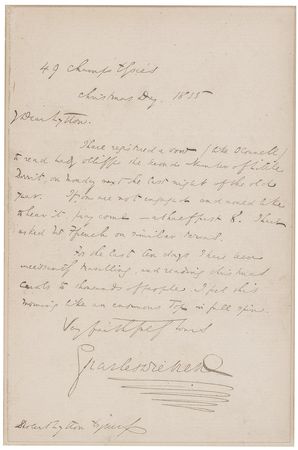 49 Champs Elysées
Christmas Day. 1855
My Dear Lytton.
I have registered a vow (like O'Connell)
to read Lady Olliffe the second Number of Little
Dorrit, on Monday next the last night of the old
year. If you are not engaged and would like
to hear it, pray come — at half past 8. I have
asked on similar terms.
In the last ten days I have been
incessantly travelling, and reading Christmas
Carols to thousands of people. I feel this
morning like an enormous Top in full spin.
Very faithfully Yours
Charles Dickens
Robert Lytton Esquire